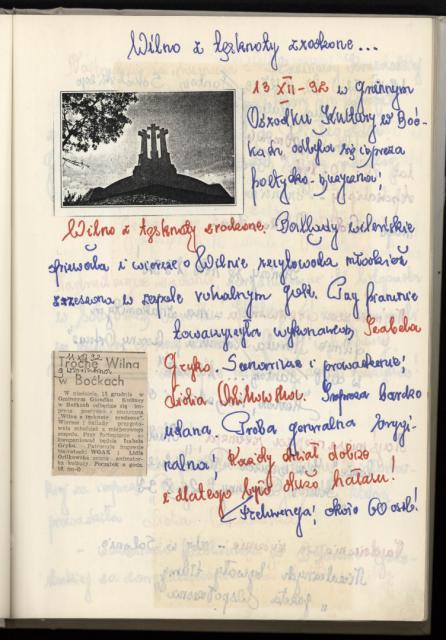 Wilno z tęsknoty zrodzone...
13 XII-92 w gminnym
Ośrodku Kultury w Boć-
kach, odbyła się impreza
poetycko-muzyczna!
Wilno z tęsknoty zrodzone. Ballady wileńskie
śpiewała i wiersze o Wilnie recytowała młodzież
zrzeszona w zespole
towarzyszyła wykonawcom Izabela
Gryko. Scenariusz i prowadzenie;
Lidia Orlikowska. Impreza bardzo
udana. Próba generalna
Każdy chciał dobrze
i dlatego było dużo hałasu!
Frekwencja! około 60 osób!
11 XII 92
Trochę Wilna
w Boćkach
W niedzielę, 13 grudnia w
Gminnym Ośrodku Kultury
w Boćkach odbędzie się im-
preza poetycko - muzyczna
„Wilno z tęsknoty zrodzone".
Wiersze i ballady przygoto-
wała młodzież z miejscowego
zespołu. Przy fortepianie
akompaniować będzie Izabela
Gryko.
WOAK i Lidia
Orlikowska
kultury. Początek o godz.